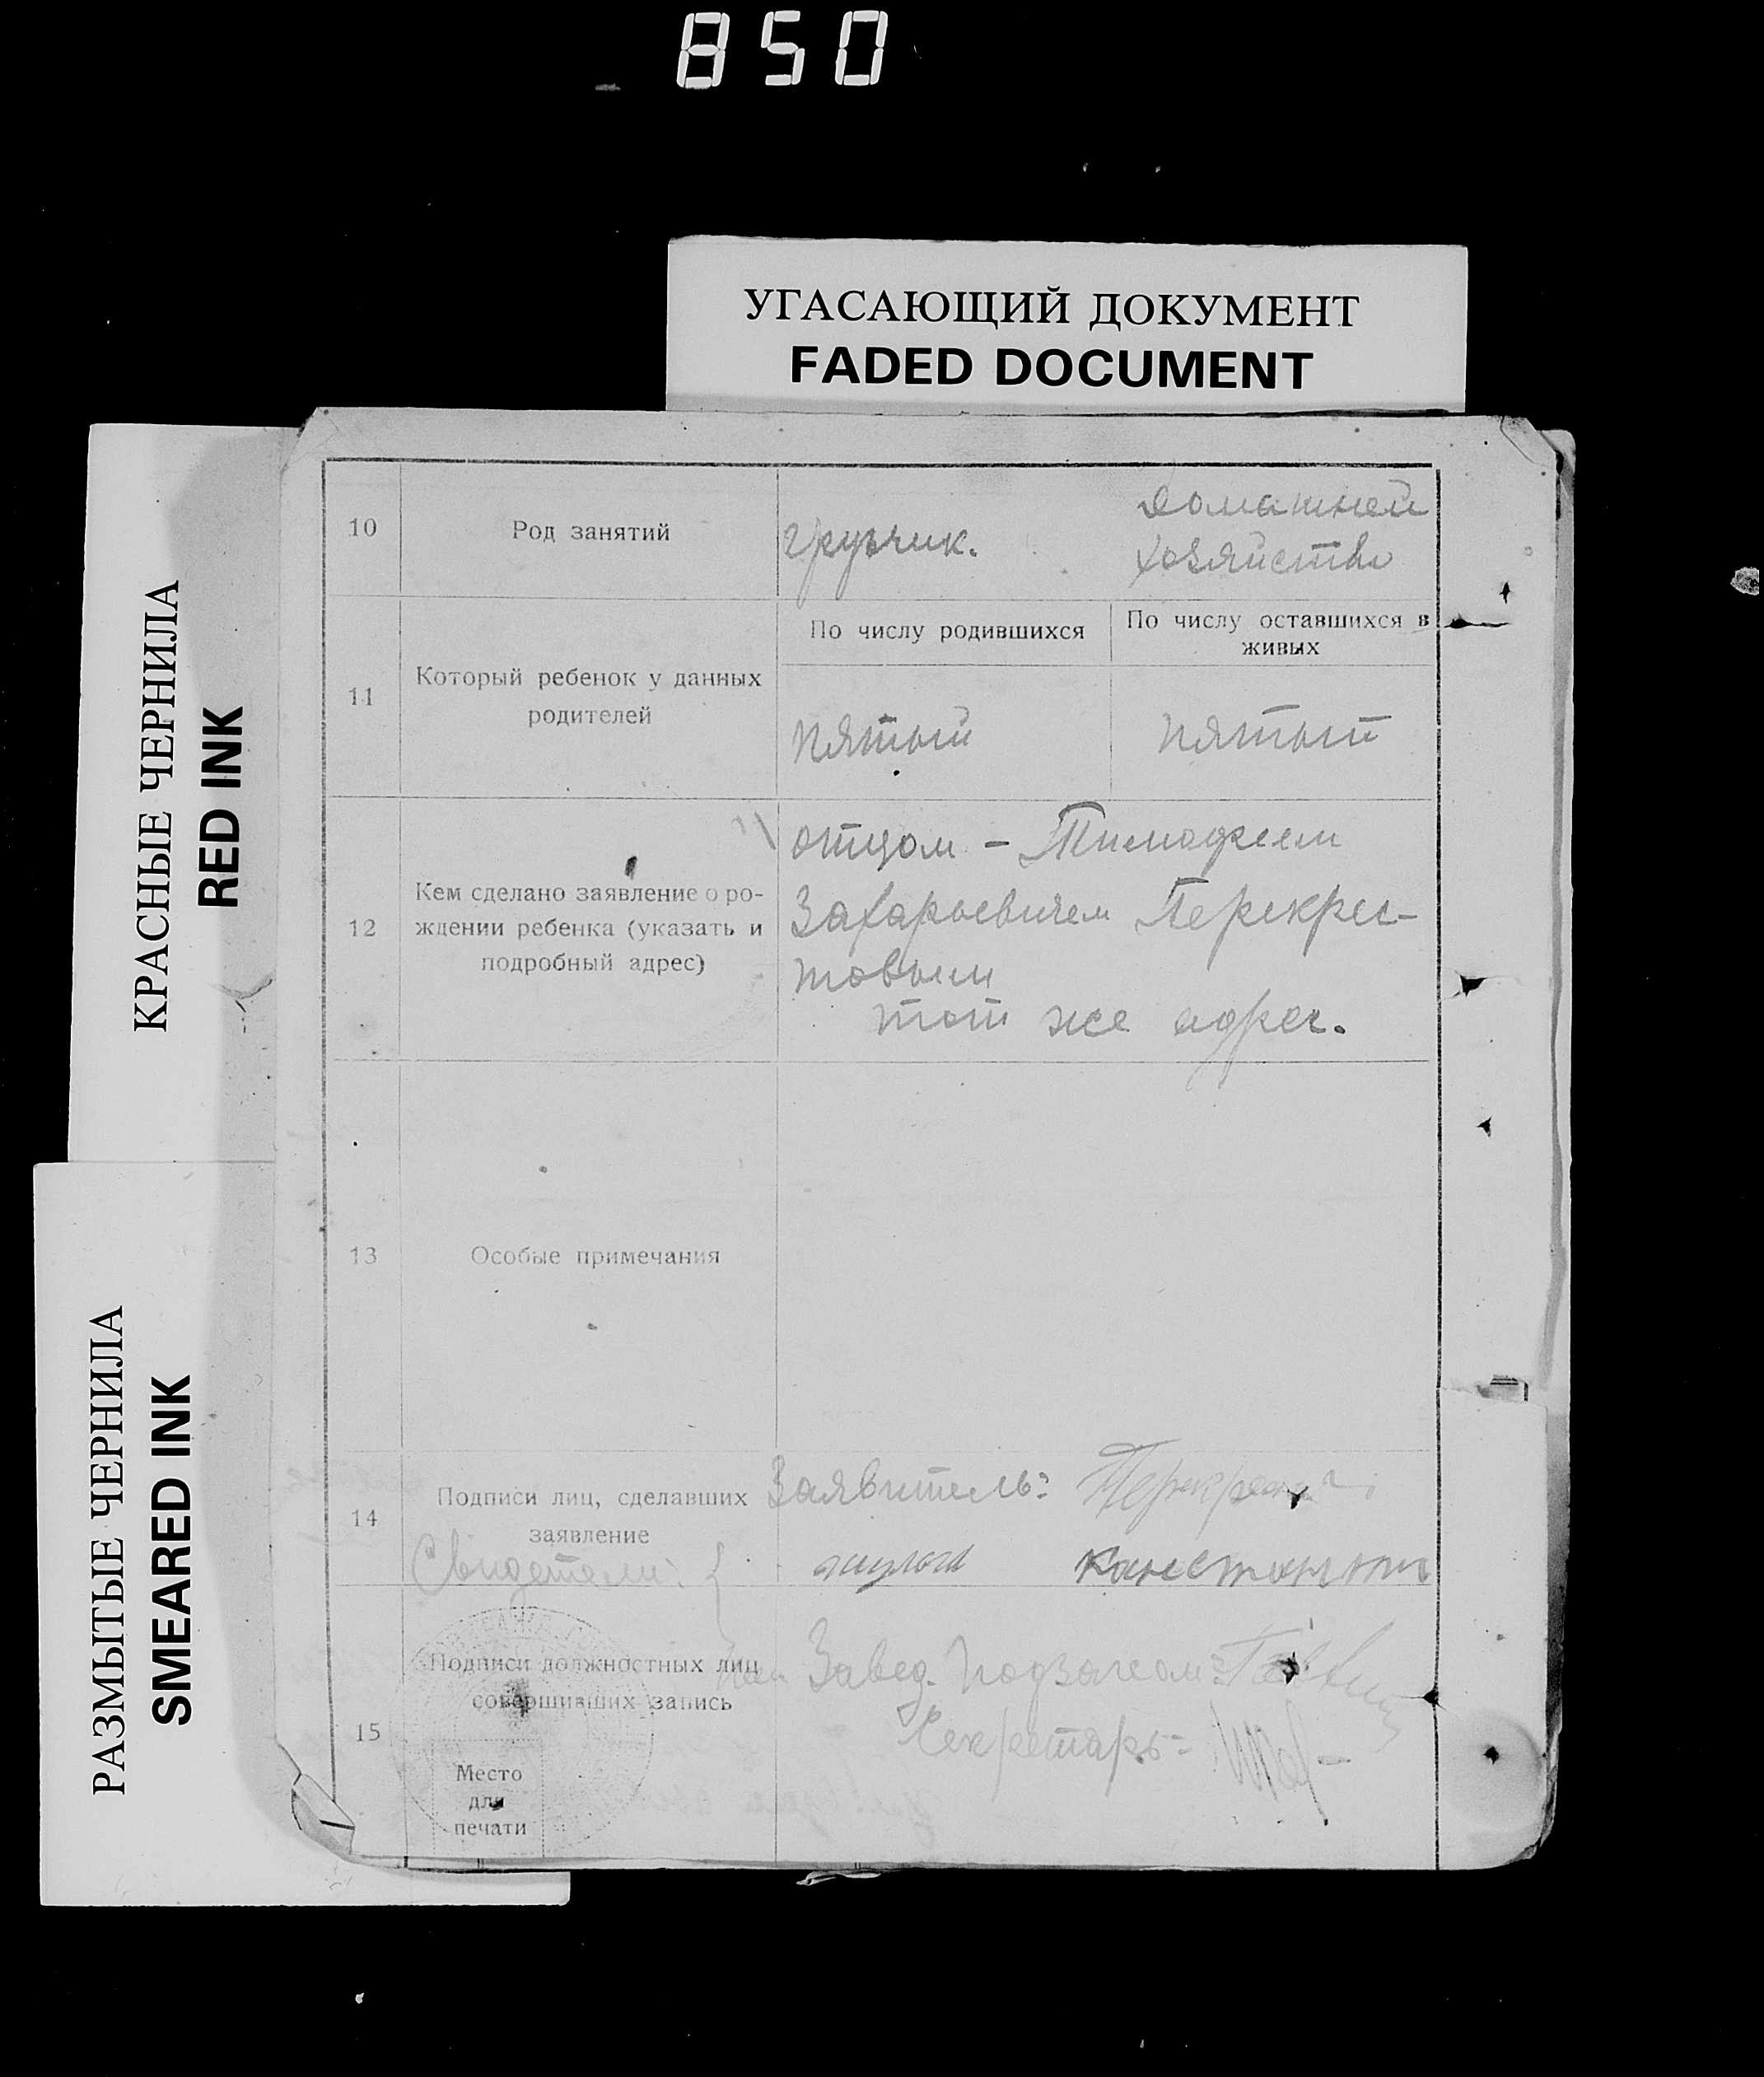 850
УГАСАЮЩИЙ ДОКУМЕНТ
FADED DOCUMENT
КРАСНЫЕ ЧЕРНИЛА
RED INK
РАЗМЫТЫЕ ЧЕРНИЛА
SMEARED INK
10
Род занятий
грузчик.
домашней
хозяйство
11
Который ребенок у данных
родителей
По числу родившихся
По числу оставшихся в
живых
пятый
пятый
12
Кем сделано заявление о ро-
ждении ребенка (указать и
подробный адрес)
отцом - Тимофеем
Захарьевичем Перекрес-
товым
тот же адрес.
13
Особые примечания
14
Подписи лиц, сделавших
заявление
Свидетели:
Заявитель:
15
Подписи должностных лиц
совершивших запись
Завед.
Секретарь:
Место
для
печати